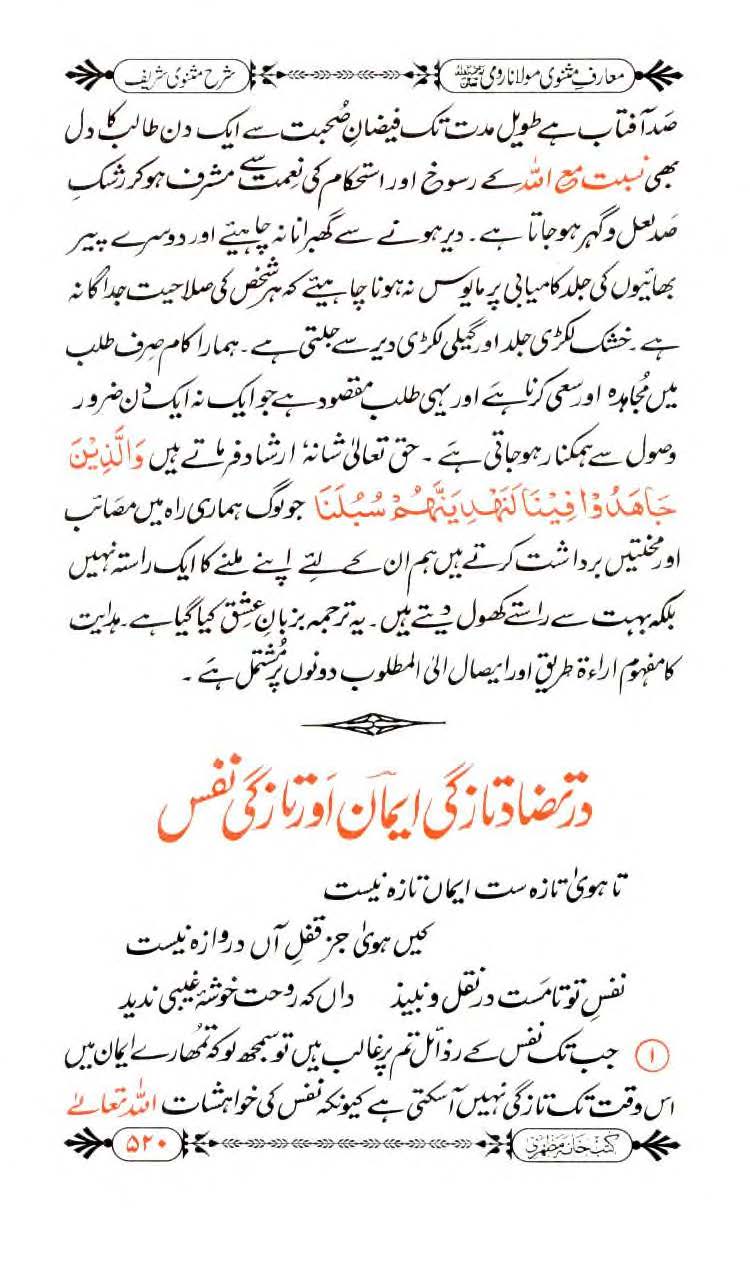 معارفِ مثنوی مولانا رومی رحمہ اللہ تعالیٰ
شرح مثنوی شریف
صَد آفتاب ہے طویل مدت تک فیضانِ صُحبت سے ایک دن طالب کا دل
بھی نسبت مع اللہ کے رسوخ اور استحکام کی نعمت سے مشرف ہوکر رَشکِ
صَد لعل و گہر ہوجاتا ہے۔ دیر ہونے سے گھبرانا نہ چاہیئے اور دوسرے پیر
بھائیوں کی جلد کامیابی پر مایوس نہ ہونا چاہیئے کہ ہر شخص کی صلاحیت جداگانہ
ہے۔ خشک لکڑی جلد اور گیلی لکڑی دیر سے جلتی ہے۔ ہمارا کام صِرف طلب
میں مُجاہدہ اور سعی کرنا ہے اور یہی طلب مقصود ہے جو ایک نہ ایک دن ضرور
وصول سے ہمکنار ہوجاتی ہے ۔ حق تعالیٰ شانہٗ ارشاد فرماتے ہیں وَالَّذِیْنَ
جَاهَدُوْا فِیْنَا لَنَهْدِیَنَّهُمْ سُبُلَنَا جو لوگ ہماری راہ میں مصَائب
اور محنتیں برداشت کرتے ہیں ہم ان کے لئے اپنے ملنے کا ایک راستہ نہیں
بلکہ بہت سے راستے کھول دیتے ہیں۔ یہ ترجمہ بزبانِ عِشق کیا گیا ہے۔ ہدایت
کا مفہوم اراءۃ طریق اور ایصال الی المطلوب دونوں پر مُشتمل ہے ۔
در تضاد تازگی ایمان اَور تازگی نفس
تا ہویٰ تازہ ست ایماں تازہ نیست
کیں ہویٰ جز قفلِ آں دروازہ نیست
نفسِ تو تا مَست در نقل و نبیذ داں کہ روحت خوشۂ غیبی ندید
۱ جب تک نفس کے رذائل تم پر غالب ہیں تو سمجھ لو کہ تمھارے ایمان میں
اس وقت تک تازگی نہیں آسکتی ہے کیونکہ نفس کی خواہشات اللہ تعالےٰ
کتب خانہ مظہری
۵۲۰